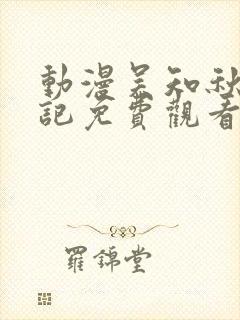 動漫吴知秋
記免費觀看
羅錦堂